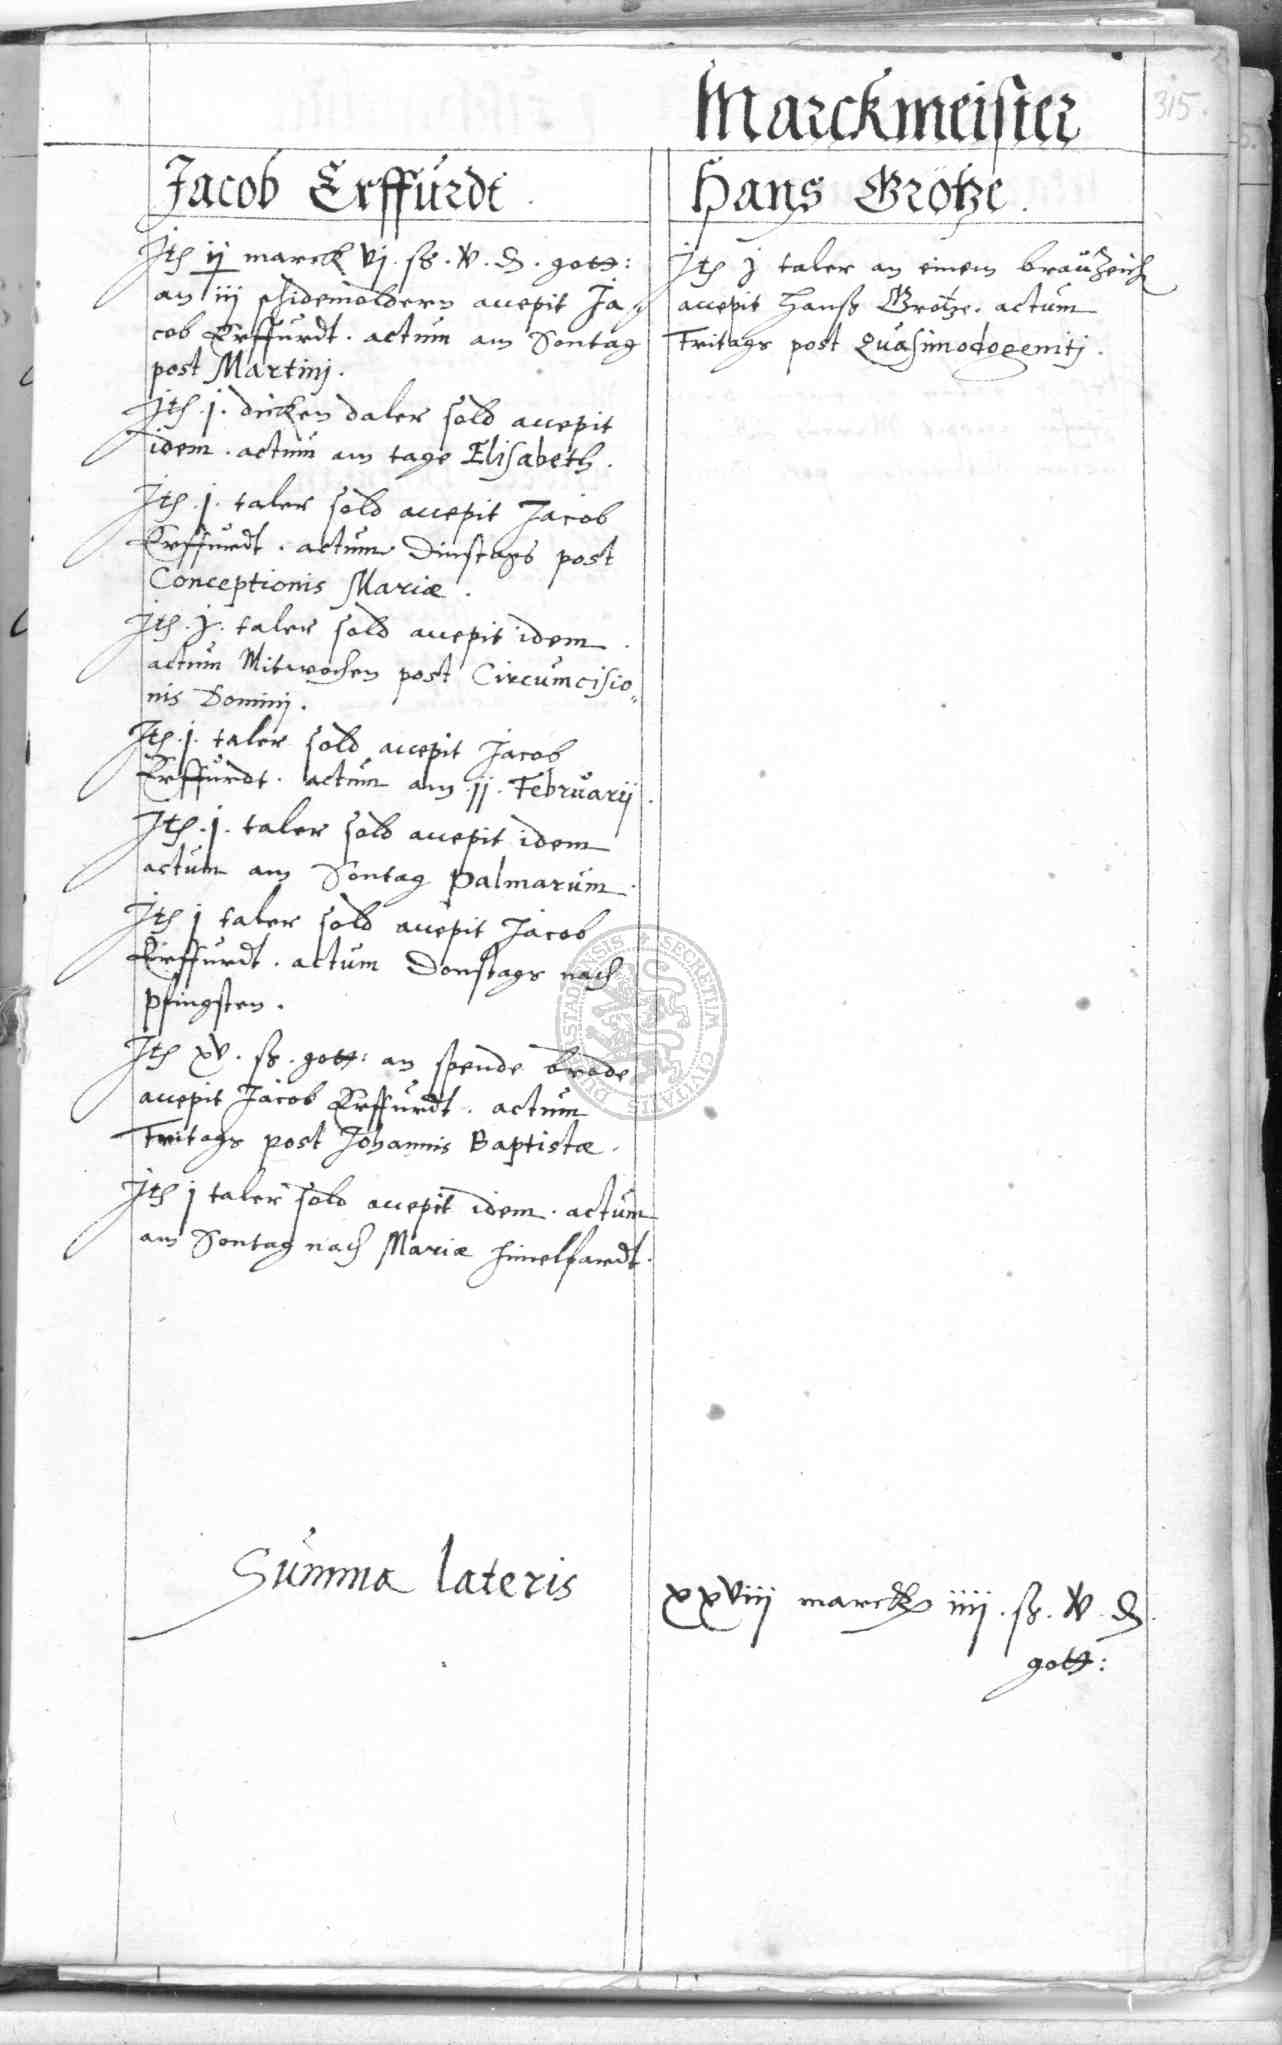 Marckmeister
315.
Jacob Erffurdt.
Jtē ij marck vj. ß. v. ₰. gott:
an iij schidemoldern accepit Ja-
cob Erffurdt. actum am Sontag
post Martinj.
Jtē .j. dicken daler sold accepit
idem. actum am tage Elisabeth.
Jtē .j. taler sold accepit Jacob
Erffurdt. actum Dinstags post
Conceptionis Mariæ.
Jtē .j. taler sold accepit idem.
actum Mitwochen post Circumcisio-
nis Dominj.
Jtē .j. taler sold accepit Jacob
Erffurdt. actum am ij. Februarij.
Jtē .j. taler sold accepit idem
actum am Sontag Palmarum.
Jtē j taler sold accepit Jacob
Erffurdt. actum Donstags nach
pfingsten.
Jtē xv. ß. gott: an spende brode
accepit Jacob Erffurdt. actum
Fritags post Johannis Baptistæ.
Jtē j taler sold accepit idem. actum
am Sontag nach Mariæ himelfardt.
Hans Grotze.
Jtē j taler an einem brauzeich
accepit Hanß Grotze. actum
Fritags post Quasimodogenitj.
Summa lateris
xxviij marck iiij. ß. v. ₰.
gott:
SECRETUM CIVITATIS DUDERSTADENSIS